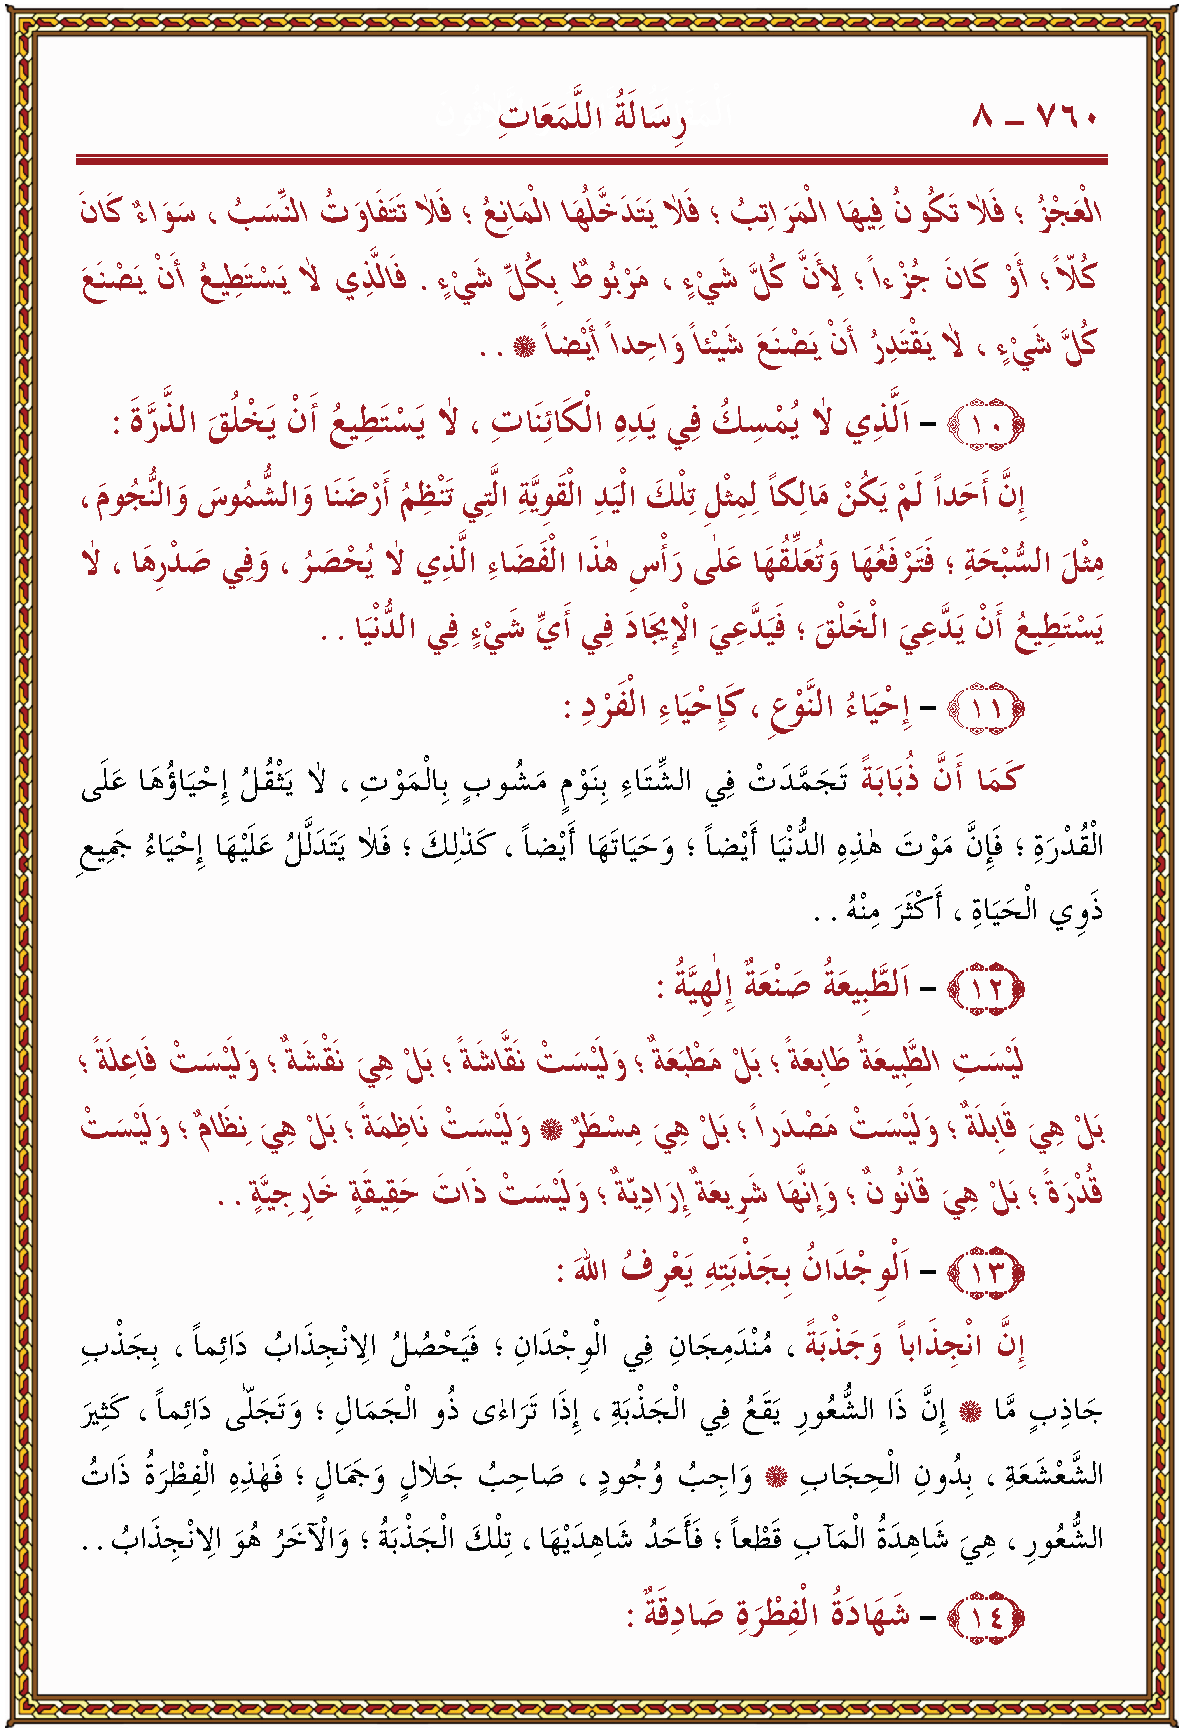 ٧٦٠ – ٨ رِسَالَةُ اللَّمَعَاتِ
الْعَجْزُ ؛ فَلَا تَكُونُ فِيهَا الْمَرَاتِبُ ؛ فَلَا يَتَدَخَّلُهَا الْمَانِعُ ؛ فَلَا تَتَفَاوَتُ النِّسَبُ ، سَوَاءٌ كَانَ
كُلاًّ ؛ أَوْ كَانَ جُزْءاً ؛ لِأَنَّ كُلَّ شَيْءٍ ، مَرْبُوطٌ بِكُلِّ شَيْءٍ . فَالَّذِي لَا يَسْتَطِيعُ أَنْ يَصْنَعَ
كُلَّ شَيْءٍ ، لَا يَقْتَدِرُ أَنْ يَصْنَعَ شَيْئاً وَاحِداً أَيْضاً ۞ . .
﴿١٠﴾ – اَلَّذِي لَا يُمْسِكُ فِي يَدِهِ الْكَائِنَاتِ ، لَا يَسْتَطِيعُ أَنْ يَخْلُقَ الذَّرَّةَ :
إِنَّ أَحَداً لَمْ يَكُنْ مَالِكاً لِمِثْلِ تِلْكَ الْيَدِ الْقَوِيَّةِ الَّتِي تَنْظِمُ أَرْضَنَا وَالشُّمُوسَ وَالنُّجُومَ ،
مِثْلَ السُّبْحَةِ ؛ فَتَرْفَعُهَا وَتُعَلِّقُهَا عَلَى رَأْسِ هٰذَا الْفَضَاءِ الَّذِي لَا يُحْصَرُ ، وَفِي صَدْرِهَا ، لَا
يَسْتَطِيعُ أَنْ يَدَّعِيَ الْخَلْقَ ؛ فَيَدَّعِيَ الْإِيجَادَ فِي أَيِّ شَيْءٍ فِي الدُّنْيَا . .
﴿١١﴾ – إِحْيَاءُ النَّوْعِ ، كَإِحْيَاءِ الْفَرْدِ :
كَمَا أَنَّ ذُبَابَةً تَجَمَّدَتْ فِي الشِّتَاءِ بِنَوْمٍ مَشُوبٍ بِالْمَوْتِ ، لَا يَثْقُلُ إِحْيَاؤُهَا عَلَى
الْقُدْرَةِ ؛ فَإِنَّ مَوْتَ هٰذِهِ الدُّنْيَا أَيْضاً ؛ وَحَيَاتَهَا أَيْضاً ، كَذٰلِكَ ؛ فَلَا يَتَدَلَّلُ عَلَيْهَا إِحْيَاءُ جَمِيعِ
ذَوِي الْحَيَاةِ ، أَكْثَرَ مِنْهُ . .
﴿١٢﴾ – اَلطَّبِيعَةُ صَنْعَةٌ إِلٰهِيَّةُ :
لَيْسَتِ الطَّبِيعَةُ طَابِعَةً ؛ بَلْ مَطْبَعَةٌ ؛ وَلَيْسَتْ نَقَّاشَةً ؛ بَلْ هِيَ نَقْشَةٌ ؛ وَلَيْسَتْ فَاعِلَةً ؛
بَلْ هِيَ قَابِلَةٌ ؛ وَلَيْسَتْ مَصْدَراً ؛ بَلْ هِيَ مِسْطَرٌ ۞ وَلَيْسَتْ نَاظِمَةً ؛ بَلْ هِيَ نِظَامٌ ؛ وَلَيْسَتْ
قُدْرَةً ؛ بَلْ هِيَ قَانُونٌ ؛ وَإِنَّهَا شَرِيعَةٌ إِرَادِيَّةٌ ؛ وَلَيْسَتْ ذَاتَ حَقِيقَةٍ خَارِجِيَّةٍ . .
﴿١٣﴾ – اَلْوِجْدَانُ بِجَذْبَتِهِ يَعْرِفُ اللهَ :
إِنَّ انْجِذَاباً وَجَذْبَةً ، مُنْدَمِجَانِ فِي الْوِجْدَانِ ؛ فَيَحْصُلُ الِانْجِذَابُ دَائِماً ، بِجَذْبِ
جَاذِبٍ مَّا ۞ إِنَّ ذَا الشُّعُورِ يَقَعُ فِي الْجَذْبَةِ ، إِذَا تَرَاءٰى ذُو الْجَمَالِ ؛ وَتَجَلّٰى دَائِماً ، كَثِيرَ
الشَّعْشَعَةِ ، بِدُونِ الْحِجَابِ ۞ وَاجِبُ وُجُودٍ ، صَاحِبُ جَلَالٍ وَجَمَالٍ ؛ فَهٰذِهِ الْفِطْرَةُ ذَاتُ
الشُّعُورِ ، هِيَ شَاهِدَةُ الْمَآبِ قَطْعاً ؛ فَأَحَدُ شَاهِدَيْهَا ، تِلْكَ الْجَذْبَةُ ؛ وَالْآخَرُ هُوَ الِانْجِذَابُ . .
﴿١٤﴾ – شَهَادَةُ الْفِطْرَةِ صَادِقَةٌ :